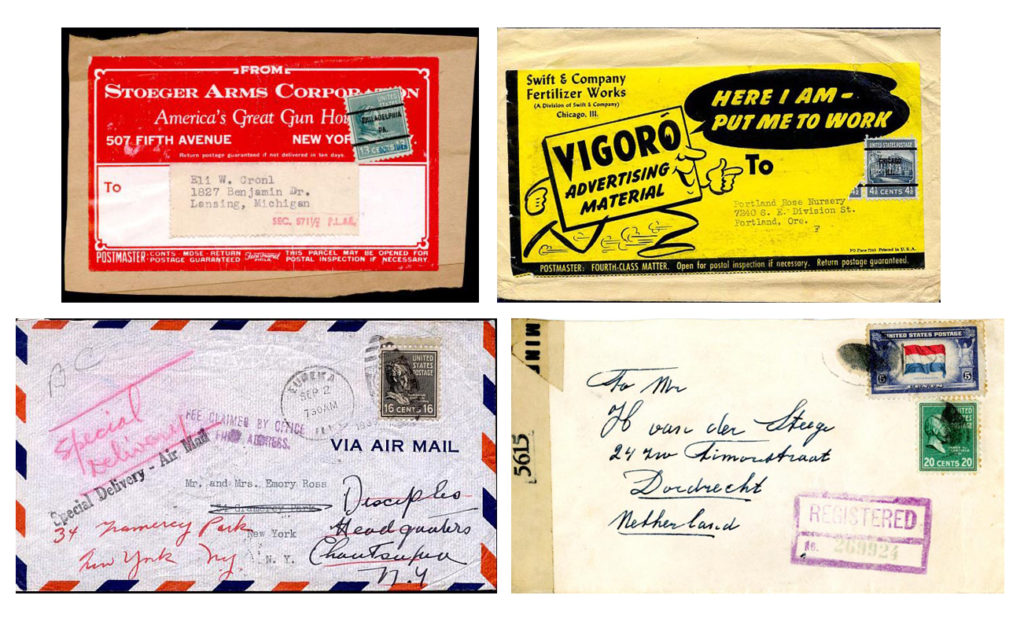 FROM
STOEGER ARMS CORPORATION
America's Great Gun Hou
507 FIFTH AVENUE NEW YOR
Return postage guaranteed if not delivered in ten days.
UNITED STATES POSTAGE
PHILADELPHIA
PA.
To
Eli W. Cronl
1827 Benjamin Dr.
Lansing, Michigan
SEC.
P.L.&R.
POSTMASTER: CONTS - MDSE - RETURN POSTAGE GUARANTEED
THIS PARCEL MAY BE OPENED FOR POSTAL INSPECTION IF NECESSARY.
Swift & Company
Fertilizer Works
(A Division of Swift & Company)
Chicago, Ill.
HERE I AM -
PUT ME TO WORK
VIGORO
ADVERTISING
MATERIAL
To
UNITED STATES POSTAGE
CHICAGO
4½ CENTS 4½
Portland Rose Nursery
7240 S. E. Division St.
Portland, Ore.
F
Printed in U.S.A.
POSTMASTER: FOURTH-CLASS MATTER. Open for postal inspection if necessary. Return postage guaranteed.
B C
Special
Delivery
EUREKA
SEP 2
7 30 AM
ILL.
UNITED
STATES
POSTAGE
16 CENTS 16
FEE CLAIMED BY OFFICE
OF FIRST ADDRESS.
VIA AIR MAIL
Special Delivery - Air Mail
Mr. and Mrs. Emory Ross
Disciples
Headquaters
Chautauqua
N.Y
New York
N. Y.
34 Gramercy Park
New York NY
MINI
5615
UNITED STATES POSTAGE
5 CENTS 5
UNITED
STATES
POSTAGE
20 CENTS 20
To Mr
H van der Steege
24 rw Timorstraat
Dordrecht
Netherland
REGISTERED
No. 269924